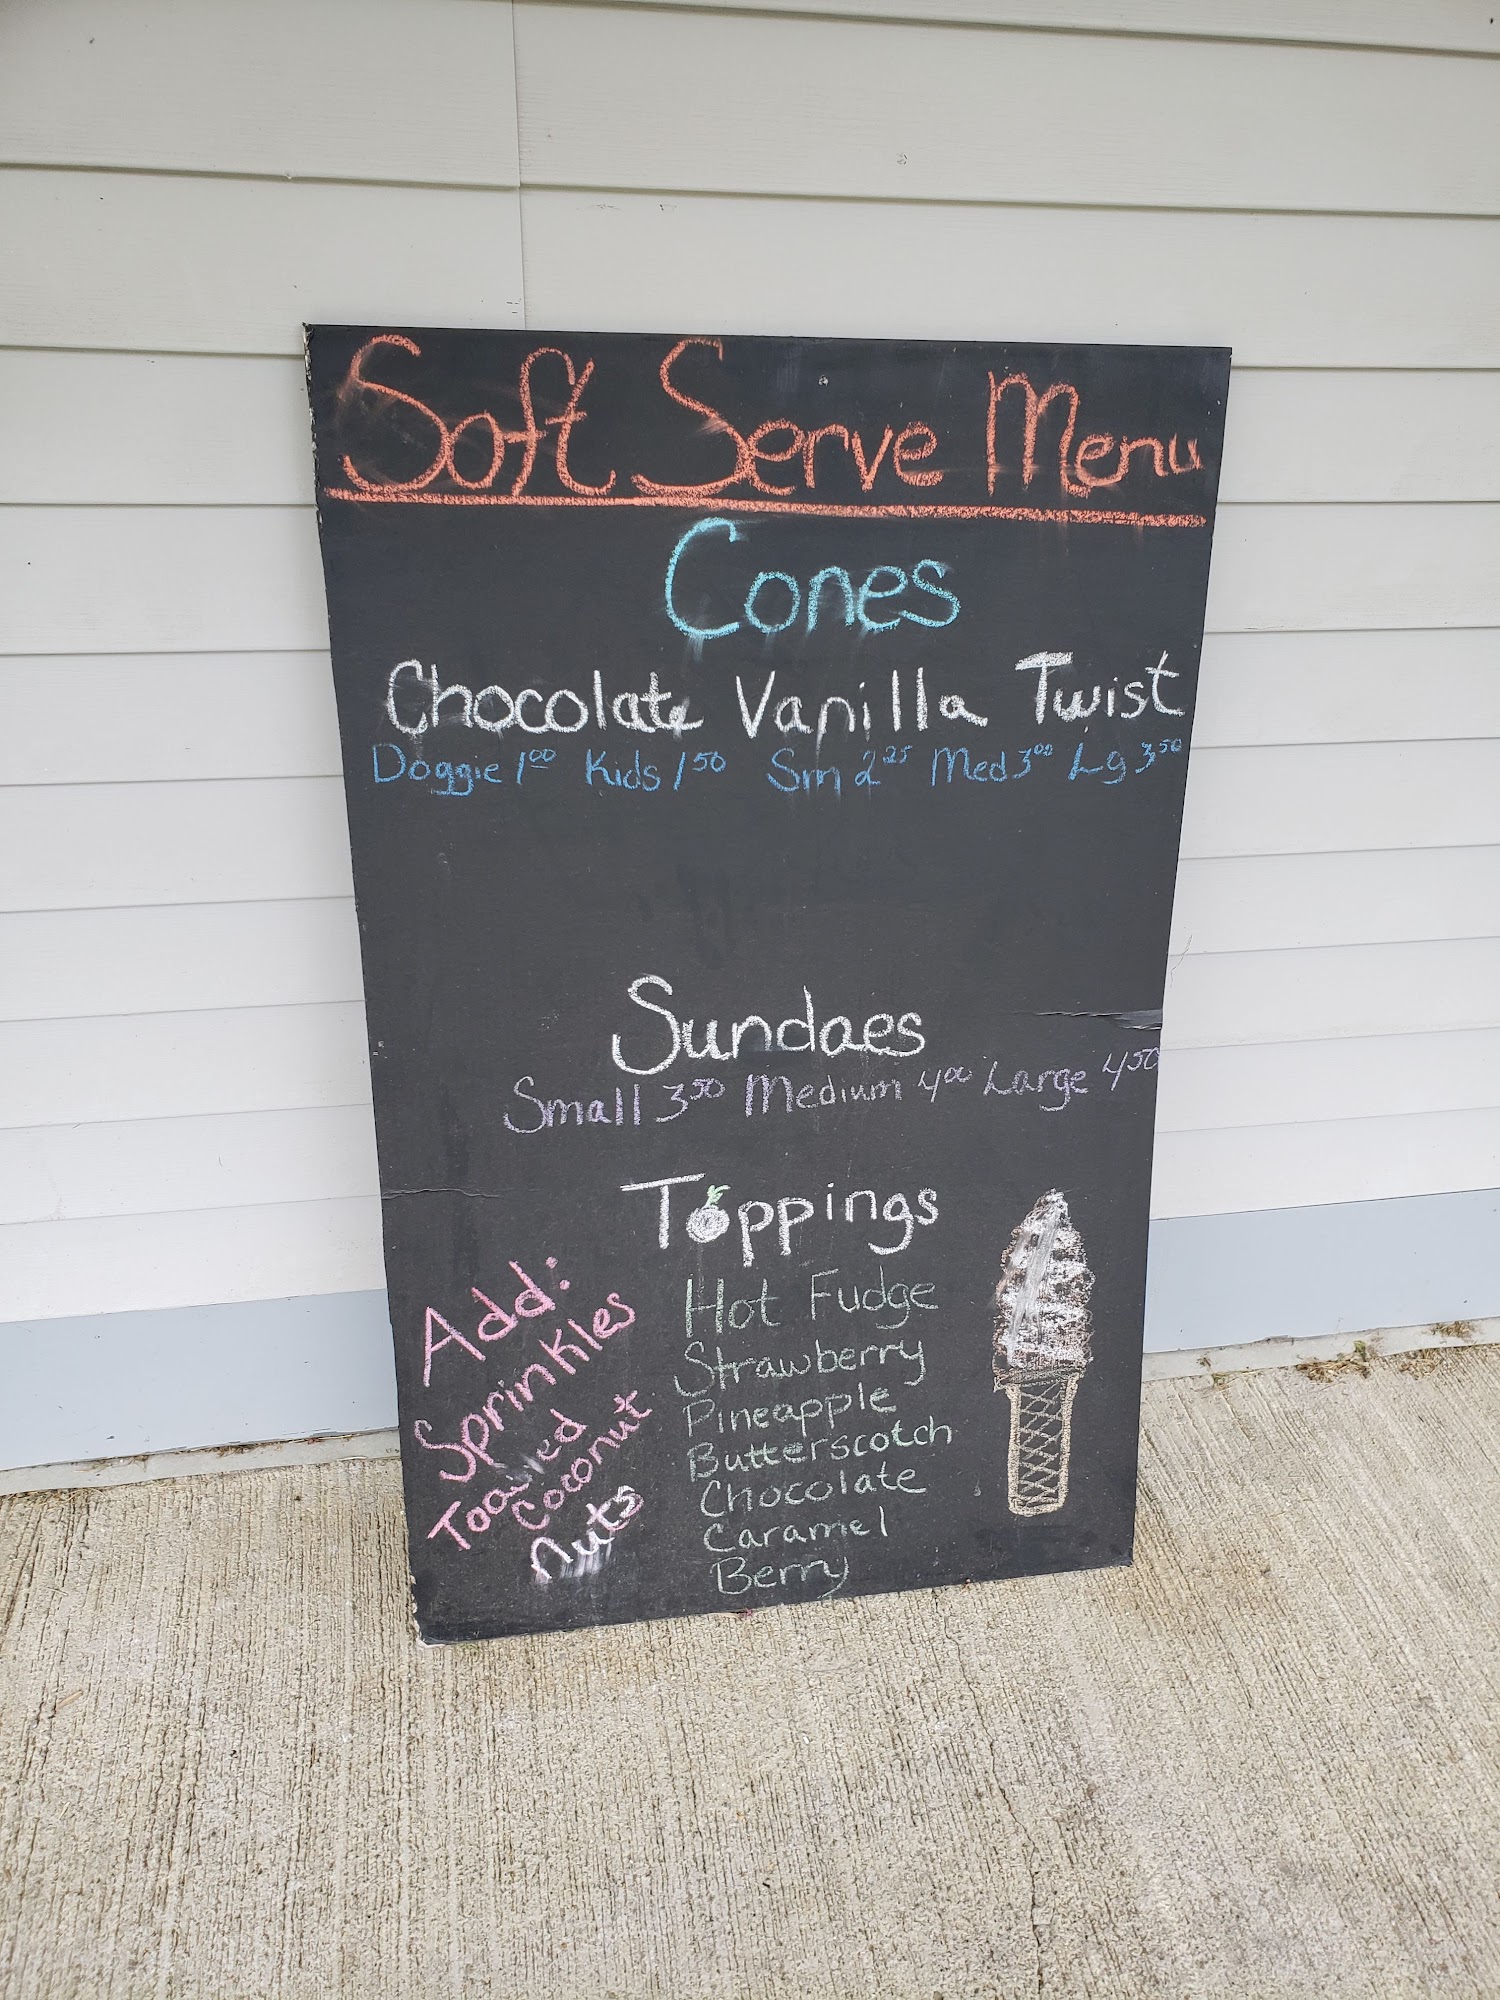 Soft Serve Menu
Cones
Chocolate Vanilla Twist
Doggie 1.00 Kids 1.50 Sm 2.25 Med 3.00 Lg 3.50
Sundaes
Small 3.50 Medium 4.00 Large 4.50
Toppings
Hot Fudge
Strawberry
Pineapple
Butterscotch
Chocolate
Caramel
Berry
Add:
Sprinkles
Coconut
Nuts